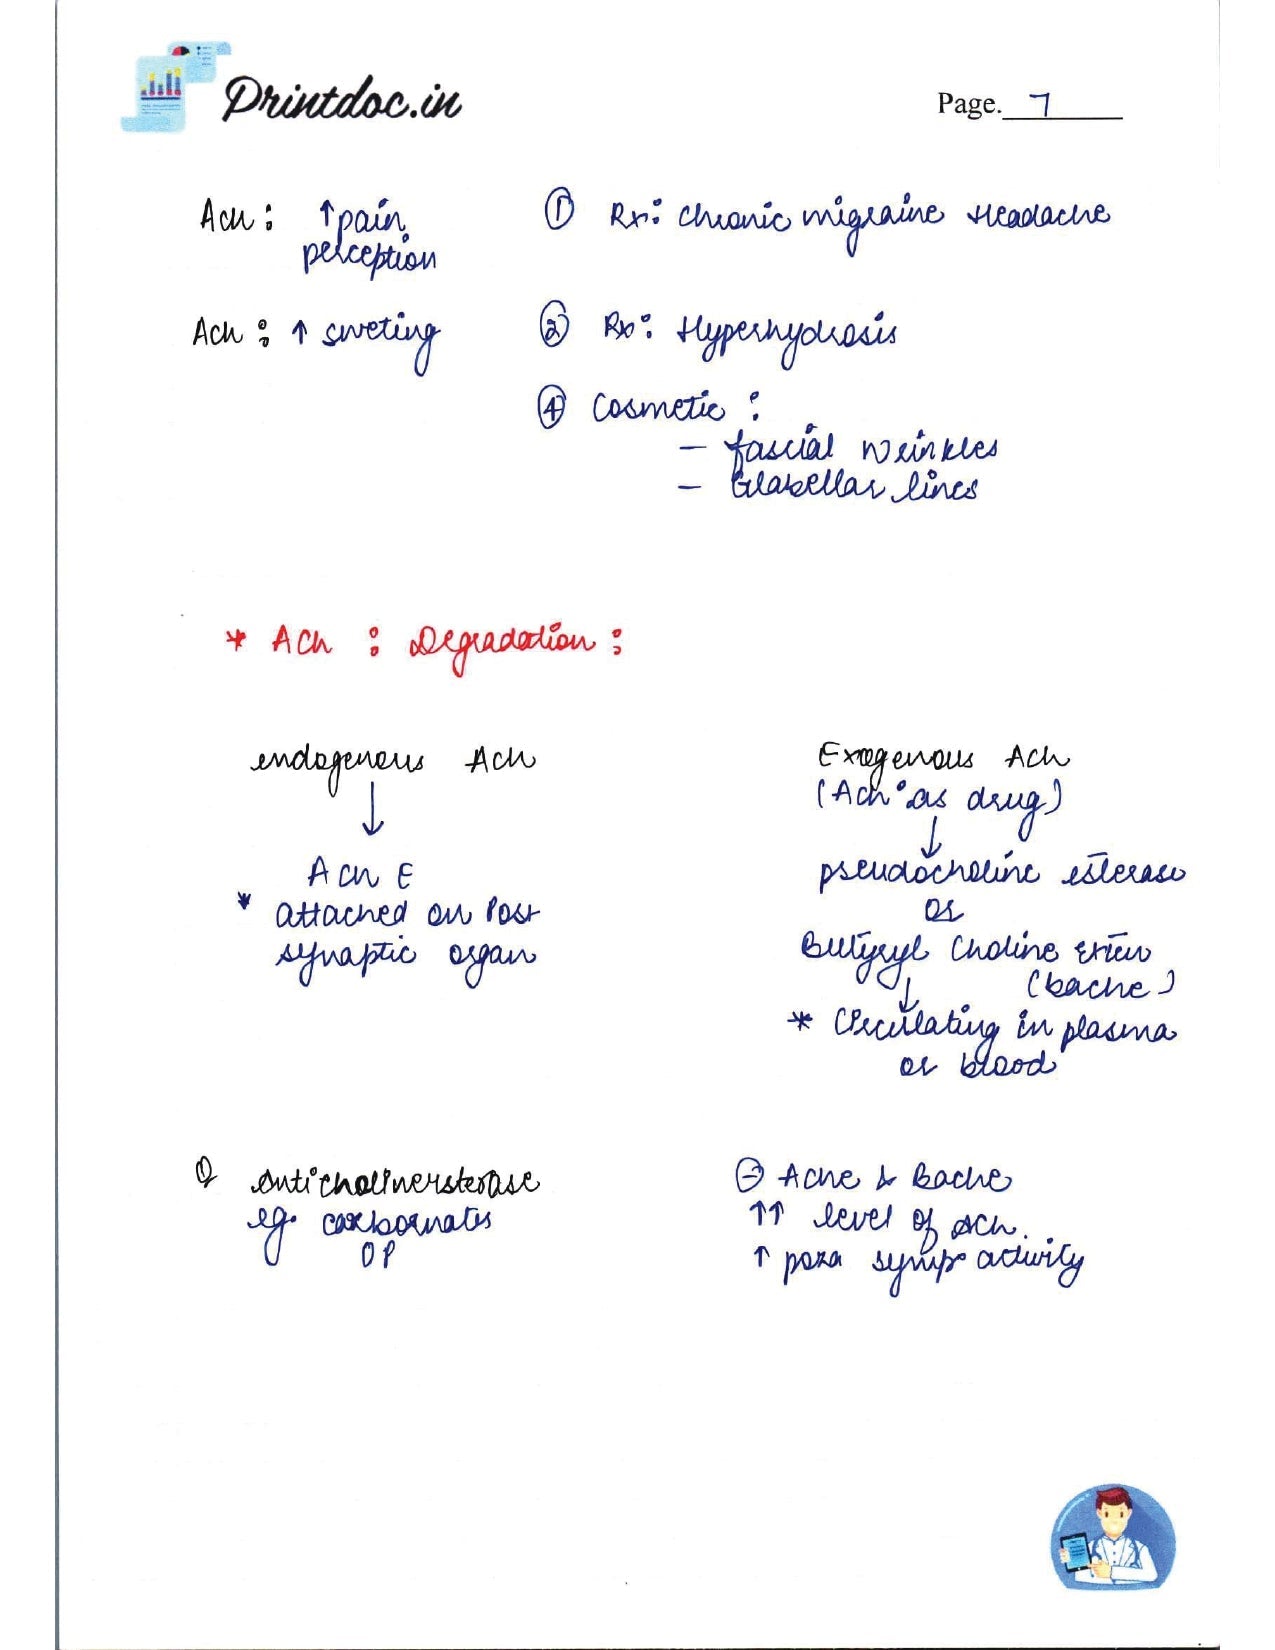 Printdoc.in
Page. 7
Ach : ↑ pain perception
① Rx: chronic migraine Headache
Ach : ↑ sweting
② Rx: Hyperhydrosis
④ Cosmetic :
– fascial wrinkles
– Glabellar lines
* Ach : Degradation :
endogenous Ach
↓
Ach E
* attached on post
synaptic organ
Exogenous Ach
(Ach as drug)
↓
pseudocholine esterase
or
Butyryl choline
(bache)
↓
* Circulating in plasma
or blood
Anticholinersterase
eg. carbornates
OP
⊖ Ache & Bache
↑↑ level of Ach.
↑ para symp. activity